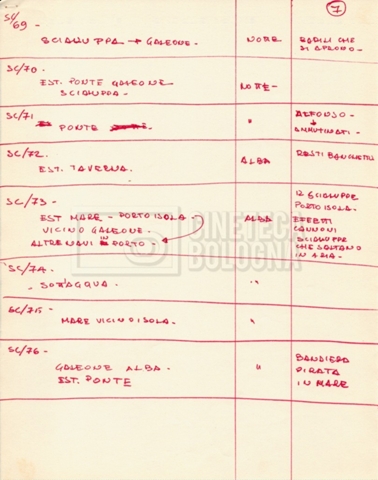 7
SC/69 -
SCIALUPPA → GALEONE - NOTTE BARILI CHE
SI APRONO -
SC/70 -
EST. PONTE GALEONE
SCIALUPPA - NOTTE -
SC/71
PONTE - " ALFONSO -
AMMUTINATI -
SC/72 -
EST. TAVERNA - ALBA RESTI BANCHETTO
SC/73 -
EST MARE - PORTO ISOLA - ALBA 12 SCIALUPPE
PORTO ISOLA -
VICINO GALEONE - EFFETTI
ALTRE NAVI IN PORTO - CANNONI
SCIALUPPE
CHE SALTANO
IN ARIA -
CINETECA
BOLOGNA
SC/74 -
SOTT'ACQUA - "
SC/75 -
MARE VICINO ISOLA - "
SC/76 -
GALEONE ALBA - " BANDIERA
EST. PONTE PIRATA
IN MARE